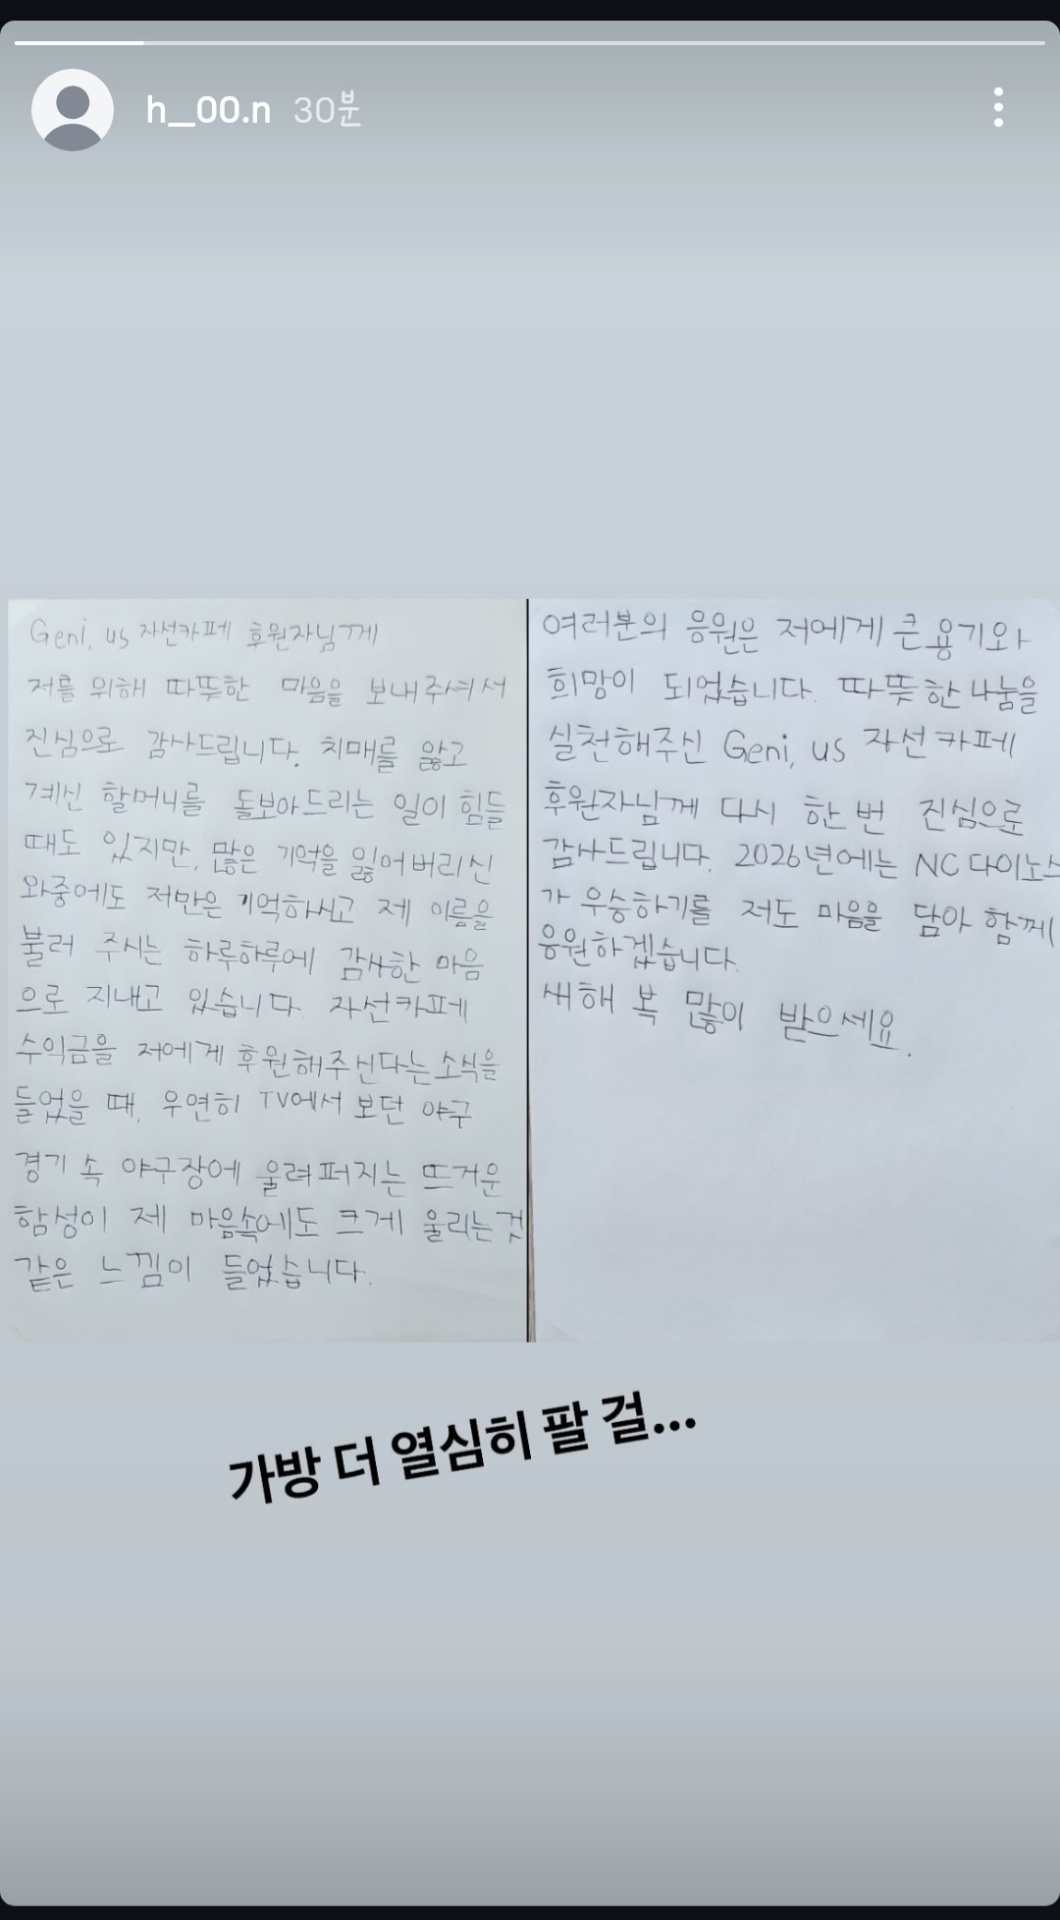 h_00.n 30분
Geni, us 자선카페 후원자님께
저를 위해 따뜻한 마음을 보내주셔서
진심으로 감사드립니다. 치매를 앓고
계신 할머니를 돌보아드리는 일이 힘들
때도 있지만, 많은 기억을 잃어버리신
와중에도 저만은 기억하시고 제 이름을
불러 주시는 하루하루에 감사한 마음
으로 지내고 있습니다. 자선카페
수익금을 저에게 후원해주신다는 소식을
들었을 때, 우연히 TV에서 보던 야구
경기 속 야구장에 울려퍼지는 뜨거운
함성이 제 마음속에도 크게 울리는것
같은 느낌이 들었습니다.
여러분의 응원은 저에게 큰 용기와
희망이 되었습니다. 따뜻한 나눔을
실천해주신 Geni, us 자선카페
후원자님께 다시 한 번 진심으로
감사드립니다. 2026년에는 NC 다이노스
가 우승하기를 저도 마음을 담아 함께
응원하겠습니다.
새해 복 많이 받으세요.
가방 더 열심히 팔 걸...